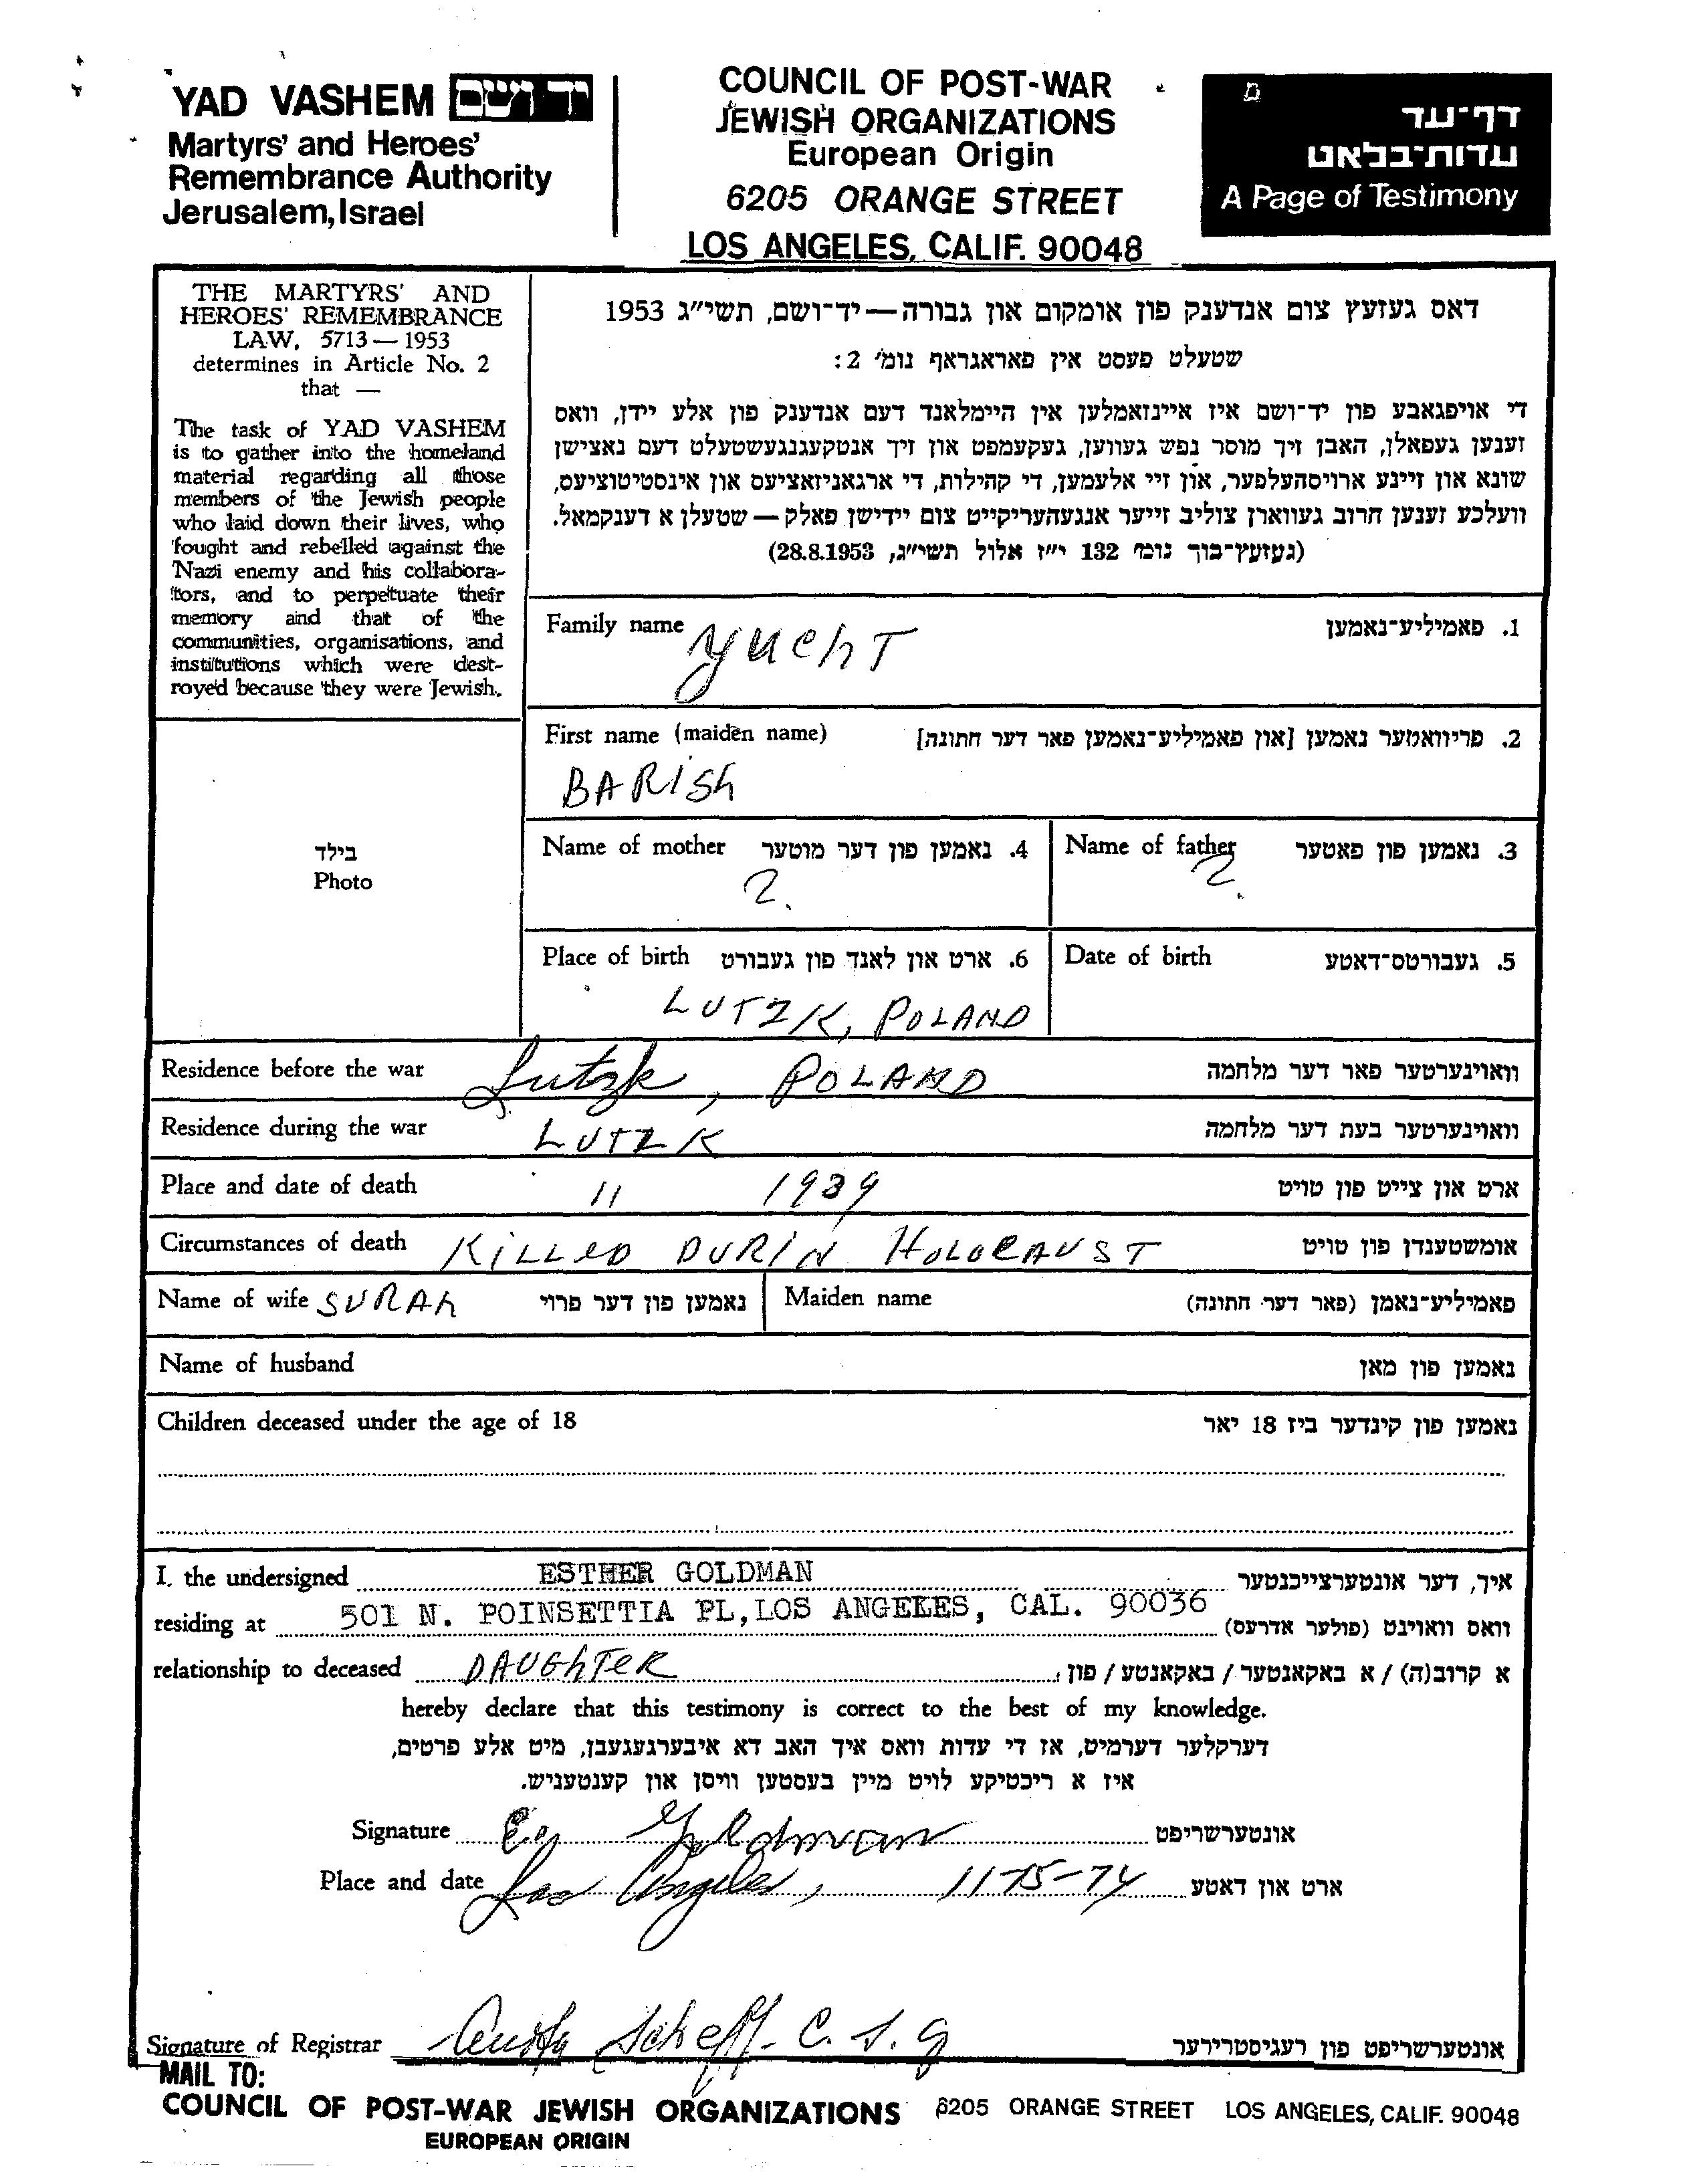 YAD VASHEM יד ושם
Martyrs' and Heroes'
Remembrance Authority
Jerusalem, Israel
COUNCIL OF POST-WAR
JEWISH ORGANIZATIONS
European Origin
6205 ORANGE STREET
LOS ANGELES, CALIF. 90048
דף־עד
עדות־בלאט
A Page of Testimony
THE MARTYRS' AND
HEROES' REMEMBRANCE
LAW, 5713—1953
determines in Article No. 2
that —
The task of YAD VASHEM
is to gather into the homeland
material regarding all those
members of the Jewish people
who laid down their lives, who
fought and rebelled against the
Nazi enemy and his collabora-
tors, and to perpetuate their
memory and that of the
communities, organisations, and
institutions which were dest-
royed because they were Jewish.
דאס געזעץ צום אנדענק פון אומקום און גבורה — יד־ושם, תשי״ג 1953
שטעלט פעסט אין פאראגראף נומ׳ 2:
די אויפגאבע פון יד־ושם איז איינזאמלען אין היימלאנד דעם אנדענק פון אלע יידן, וואס
זענען געפאלן, האבן זיך מוסר נפש געווען, געקעמפט און זיך אנטקעגנגעשטעלט דעם נאצישן
שונא און זיינע ארויסהעלפער, און זיי אלעמען, די קהילות, די ארגאניזאציעס און אינסטיטוציעס,
וועלכע זענען חרוב געווארן צוליב זייער אנגעהעריקייט צום יידישן פאלק — שטעלן א דענקמאל.
(געזעץ־בוך נומ׳ 132 י״ז אלול תשי״ג, 28.8.1953)
Family name YuchT 1. פאמיליע־נאמען
First name (maiden name) 2. פריוואטער נאמען [און פאמיליע־נאמען פאר דער חתונה]
BARISh
בילד
Photo
Name of mother 4. נאמען פון דער מוטער Name of father 3. נאמען פון פאטער
?. ?.
Place of birth 6. ארט און לאנד פון געבורט Date of birth 5. געבורטס־דאטע
LUTZK, POLAND
Residence before the war Lutzk, POLAND וואוינערטער פאר דער מלחמה
Residence during the war LUTZK וואוינערטער בעת דער מלחמה
Place and date of death 11 1939 ארט און צייט פון טויט
Circumstances of death KILLED DURIN HOLOCAUST אומשטענדן פון טויט
Name of wife SURAh נאמען פון דער פרוי Maiden name פאמיליע־נאמן (פאר דער חתונה)
Name of husband נאמען פון מאן
Children deceased under the age of 18 נאמען פון קינדער ביז 18 יאר
I, the undersigned ESTHER GOLDMAN איך, דער אונטערצייכנטער
residing at 501 N. POINSETTIA PL, LOS ANGELES, CAL. 90036 וואס וואוינט (פולער אדרעס)
relationship to deceased DAUGhTER א קרוב(ה) / א באקאנטער / באקאנטע / פון
hereby declare that this testimony is correct to the best of my knowledge.
דערקלער דערמיט, אז די עדות וואס איך האב דא איבערגעגעבן, מיט אלע פרטים,
איז א ריכטיקע לויט מיין בעסטען וויסן און קענטעניש.
Signature Goldman אונטערשריפט
Place and date Los Angeles, 11-15-74 ארט און דאטע
Signature of Registrar אונטערשריפט פון רעגיסטרירער
MAIL TO:
COUNCIL OF POST-WAR JEWISH ORGANIZATIONS 6205 ORANGE STREET LOS ANGELES, CALIF. 90048
EUROPEAN ORIGIN